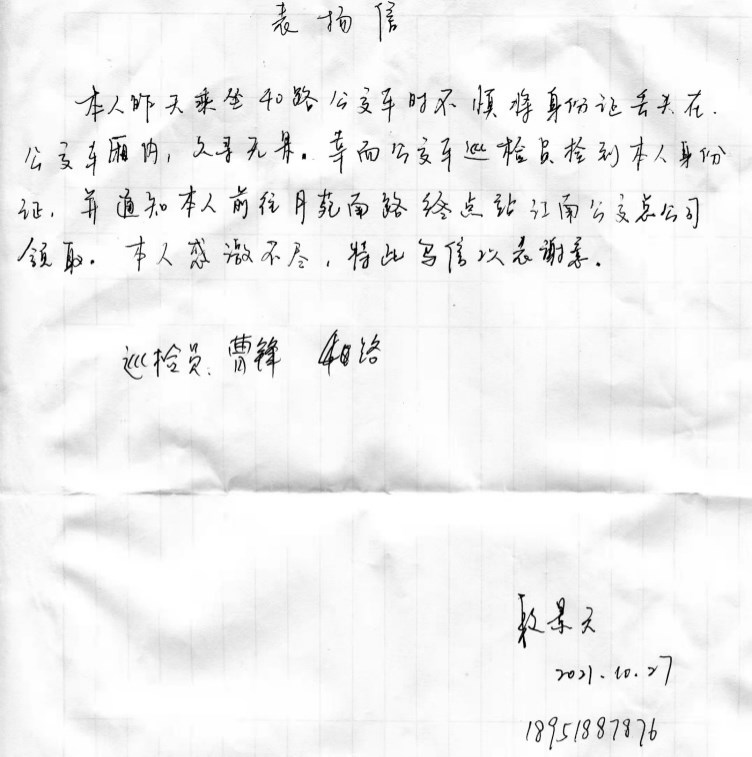 表扬信
本人昨天乘坐40路公交车时不慎将身份证丢失在.
公交车厢内，久寻无果。幸而公交车巡检员捡到本人身份
证，并通知本人前往月苑南路终点站江南公交总公司
领取。本人感激不尽，特此写信以表谢意。
巡检员、曹锋
景天
2021.10.27
18951887876